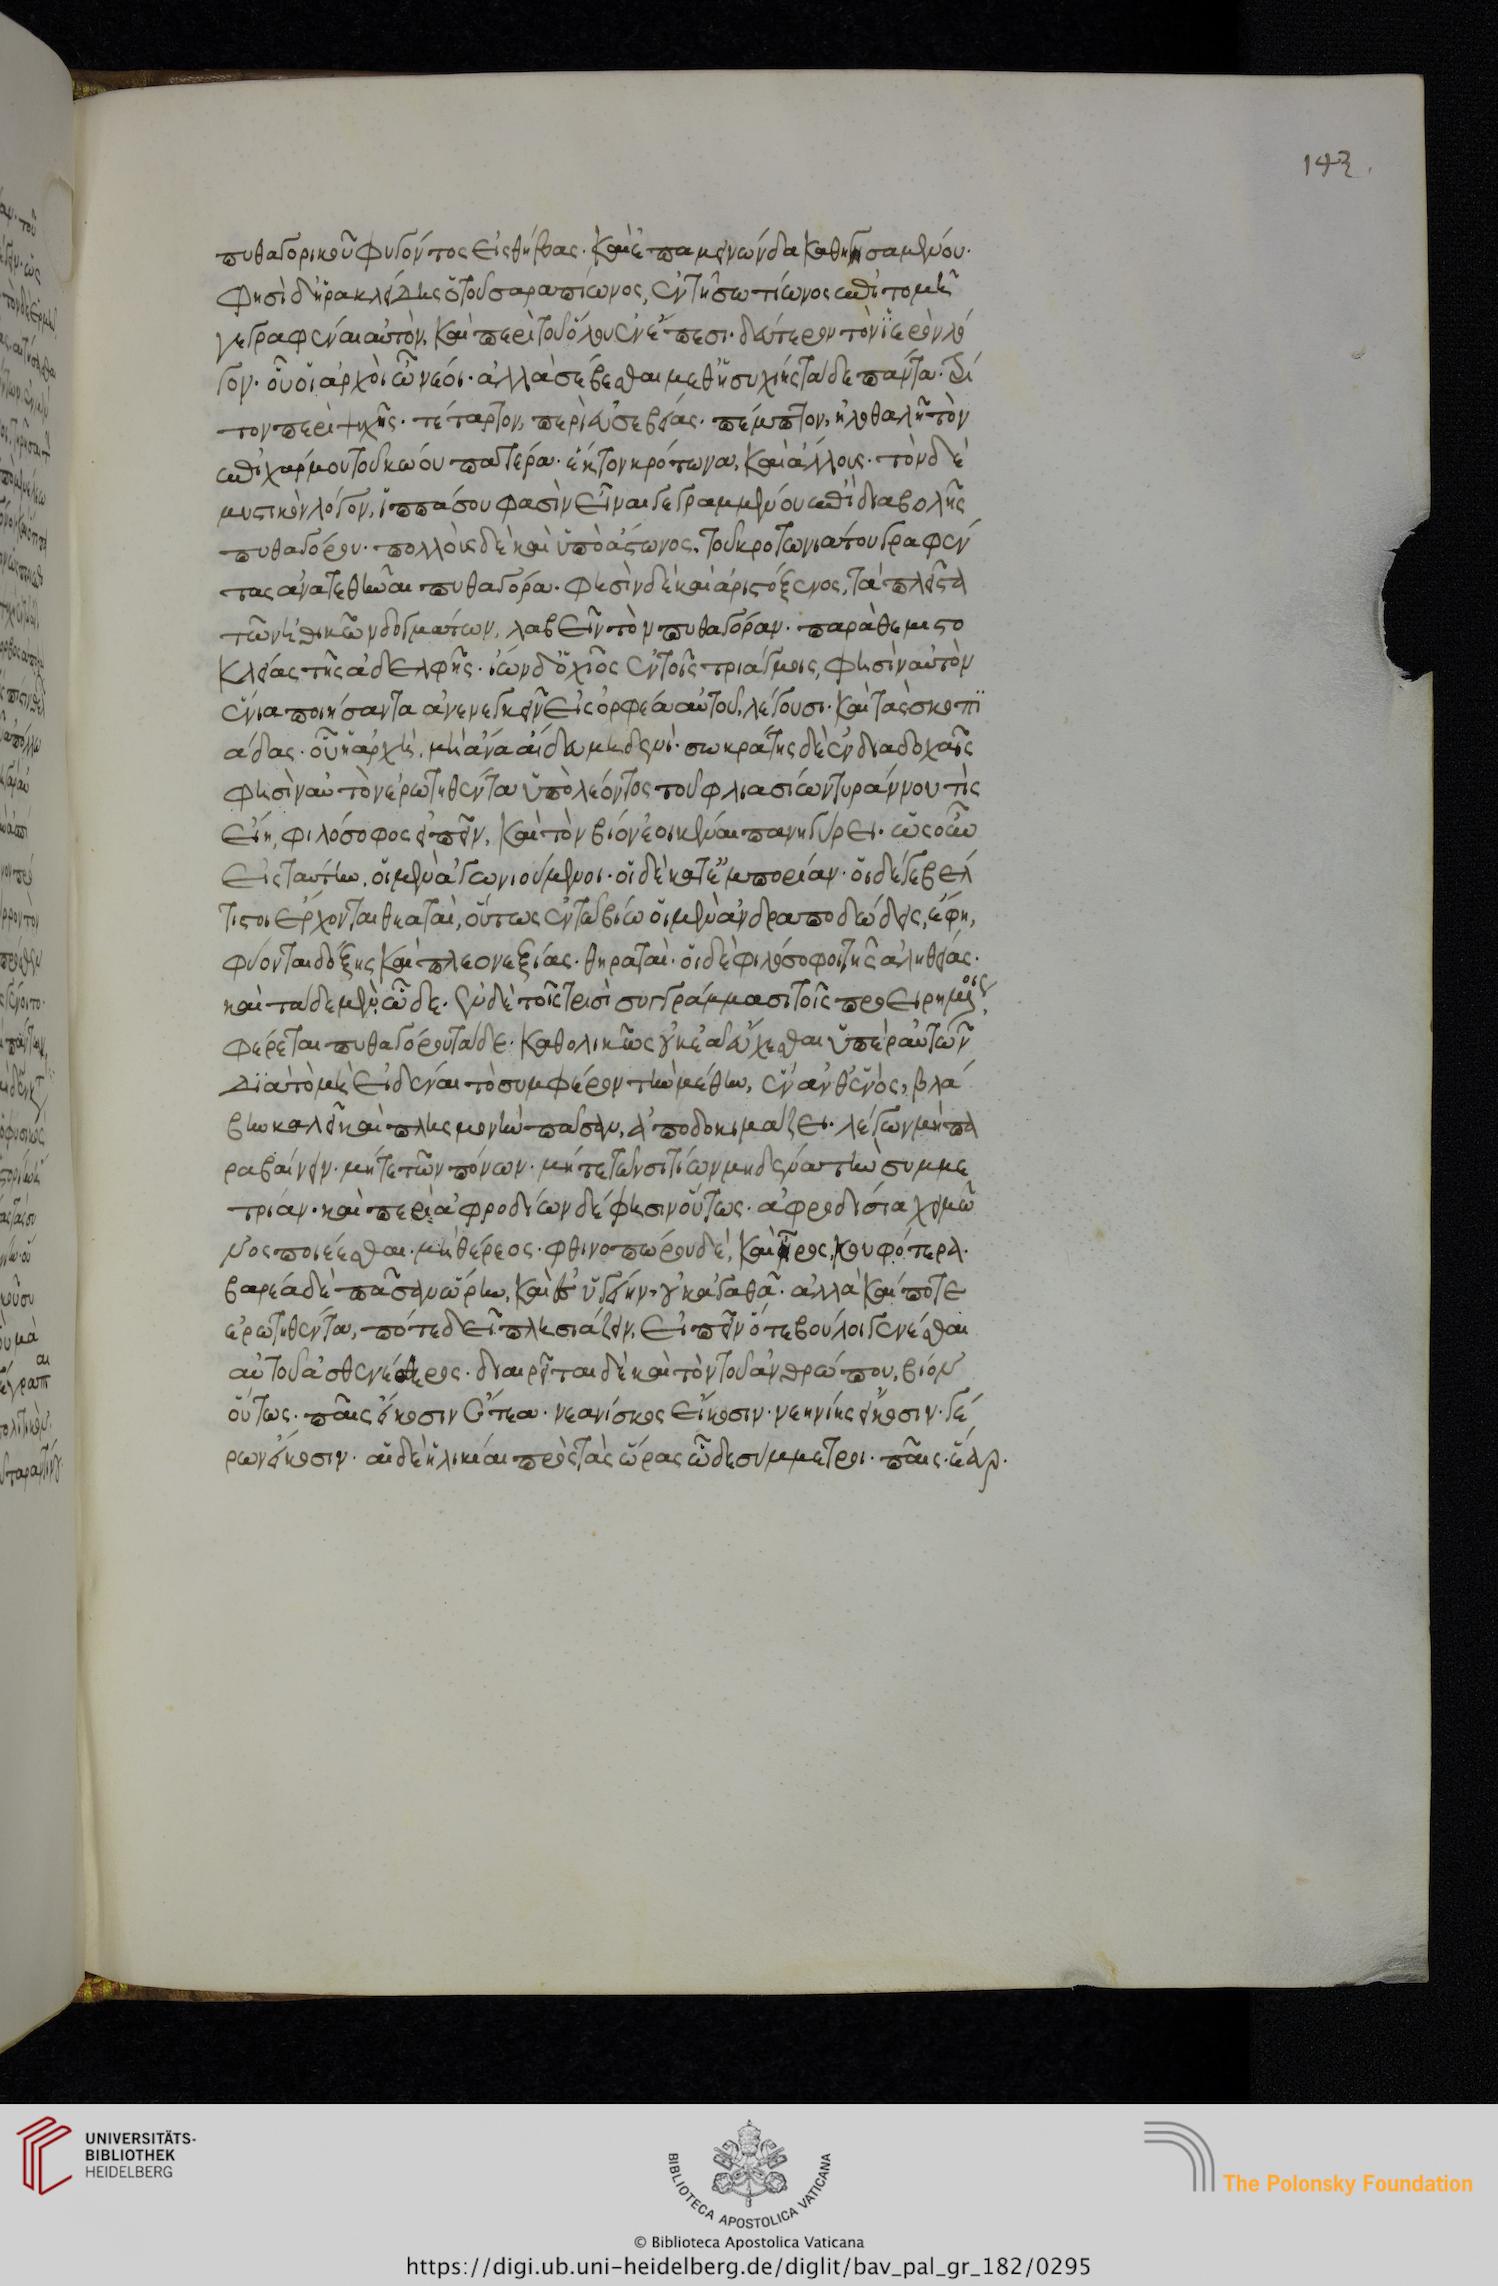 143.
πυθαγορικοῦ φυγόντος εἰς θήβας. καὶ ἐπαμεινώνδα καθηγησαμένου.
φησὶ δ' ἡρακλείδης ὁ τοῦ σαραπίωνος, ἐν τῇ σωτίωνος ἐπιτομῇ
γεγραφέναι αὐτὸν. καὶ περὶ τοῦ ὅλου ἐν ἔπεσι. δεύτερον τὸν ἱερὸν λό
γον. οὗ οἱ ἀρχὸι ὦ νεόι. ἀλλὰ σέβεσθαι μεθ' ἡσυχίης τάδε πάντα. τρί
τον περὶ ψυχῆς. τέταρτον, περὶ εὐσεβείας. πέμπτον, ἡλοθαλῆ τὸν
ἐπιχάρμου τοῦ κώου πατέρα. ἕκτον κρότωνα, καὶ ἄλλους. τὸν δὲ
μυστικὸν λόγον, ἱππάσου φασὶν εἶναι γεγραμμένου ἐπὶ διαβολῆς
πυθαγόρου. πολλοὺς δὲ καὶ ὑπὸ ἄστωνος. τοῦ κροτωνιάτου γραφέν
τας ἀνατεθῆναι πυθαγόρα. φησὶν δὲ καὶ ἀριστόξενος, τὰ πλεῖστα
τῶν ἠθικῶν δογμάτων, λαβεῖν τὸν πυθαγόραν. παρὰ θεμιστο
κλείας τῆς ἀδελφῆς. ἴων δ' ὁ χῖος ἐν τοῖς τριάγμοις, φησὶν αὐτὸν
ἔνια ποιήσαντα ἀνενεγκεῖν εἰς ὀρφέα αὐτοῦ, λέγουσι. καὶ τὰς σκοπϊ
άδας. οὗ ἡ ἀρχὴ, μὴ ἀνααίδευ μηδενί. σωκράτης δὲ ἐν διαδοχαῖς
φησὶν αὐτὸν ἐρωτηθέντα ὑπὸ λέοντος τοῦ φλιασίων τυράννου τίς
εἴη, φιλόσοφος εἰπεῖν. καὶ τὸν βίον ἐοικέναι πανηγύρει. ὡς οὖν
εἰς ταύτην, οἱ μὲν ἀγωνιούμενοι. οἱ δὲ κατ' ἐμπορίαν. οἱ δέ γε βέλ
τιστοι ἔρχονται θεαταὶ, οὕτως ἐν τῶ βίω οἱ μὲν ἀνδραποδώδεις, ἔφη,
φύονται δόξης καὶ πλεονεξίας. θηραταὶ. οἱ δὲ φιλόσοφοι, τῆς ἀληθείας.
καὶ τάδε μὲν ὧδε. ἐν δὲ τοῖς τρισὶ συγγράμμασι τοῖς προειρημένοις
φέρεται πυθαγόρου τάδε. καθολικῶς οὐκ ἐᾶ εὔχεσθαι ὑπὲρ αὐτῶν
διὰ τὸ μὴ εἰδέναι τὸ συμφέρον τὴν μέθην, ἓν ἀνθ' ἑνὸς, βλά
βην καλεῖ καὶ πλησμονὴν πᾶσαν, ἀποδοκιμάζει. λέγων μὴ πα
ραβαίνειν. μήτε τῶν πόνων. μήτε τῶν σιτίων μηδένα τὴν συμμε
τρίαν. καὶ περὶ ἀφροδίων δέ φησιν οὕτως. ἀφροδίσια χειμῶ
νος ποιέεσθαι. μὴ θέρεος. φθινοπώρου δὲ, καὶ ἦρος, κουφότερα.
βαρέα δὲ πᾶσαν ὥρην, καὶ ἐς ὑγείην, οὐκ ἀγαθά. ἀλλὰ καί ποτε
ἐρωτηθέντα, πότε δεῖ πλησιάζειν, εἰπεῖν ὅτε βούλοι γενέσθαι
αὐτοῦ ἀσθενέστερος. διαιρεῖται δὲ καὶ τὸν τοῦ ἀνθρώπου, βίον
οὕτως. παῖς εἴκοσιν ἔτεα. νεανίσκος εἴκοσιν. νεηνίης εἴκοσιν. γέ
ρων εἴκοσιν. αἱ δὲ ἡλικίαι πρὸς τὰς ὥρας ὧδε σύμμετροι. παῖς. ἔαρ.
UNIVERSITÄTS-
BIBLIOTHEK
HEIDELBERG
BIBLIOTECA APOSTOLICA VATICANA
© Biblioteca Apostolica Vaticana
The Polonsky Foundation
https://digi.ub.uni-heidelberg.de/diglit/bav_pal_gr_182/0295